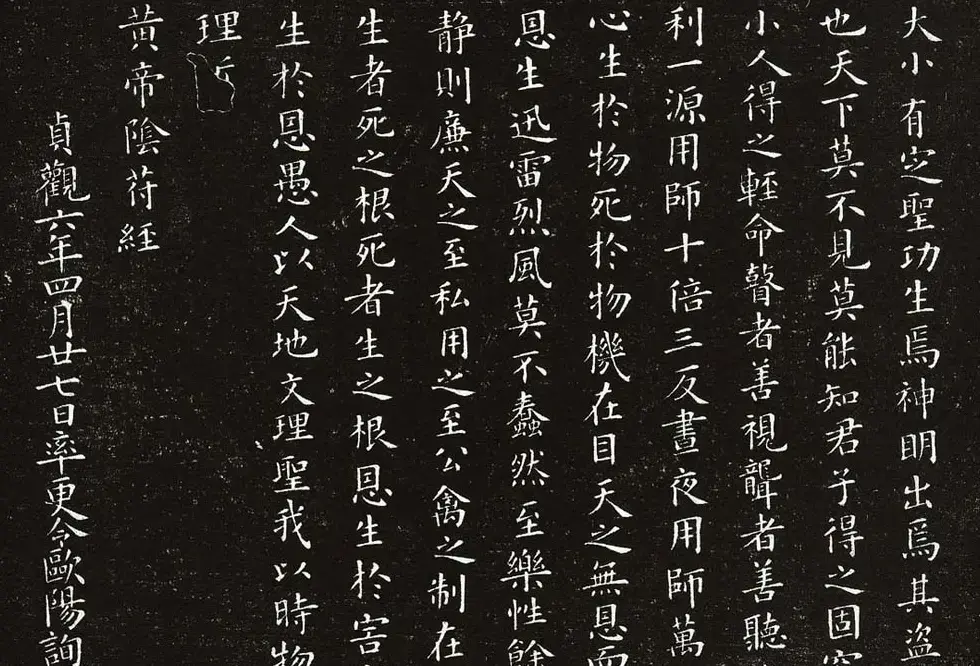 大小有定聖功生焉神明出焉其盜
也天下莫不見莫能知君子得之固
小人得之輕命瞽者善視聾者善聽
利一源用師十倍三反晝夜用師萬
心生於物死於物機在目天之無恩而
恩生迅雷烈風莫不蠢然至樂性餘
静則廉天之至私用之至公禽之制在
生者死之根死者生之根恩生於害
生於恩愚人以天地文理聖我以時物
理
黃帝陰苻経
貞觀六年四月廿七日率更令歐陽詢